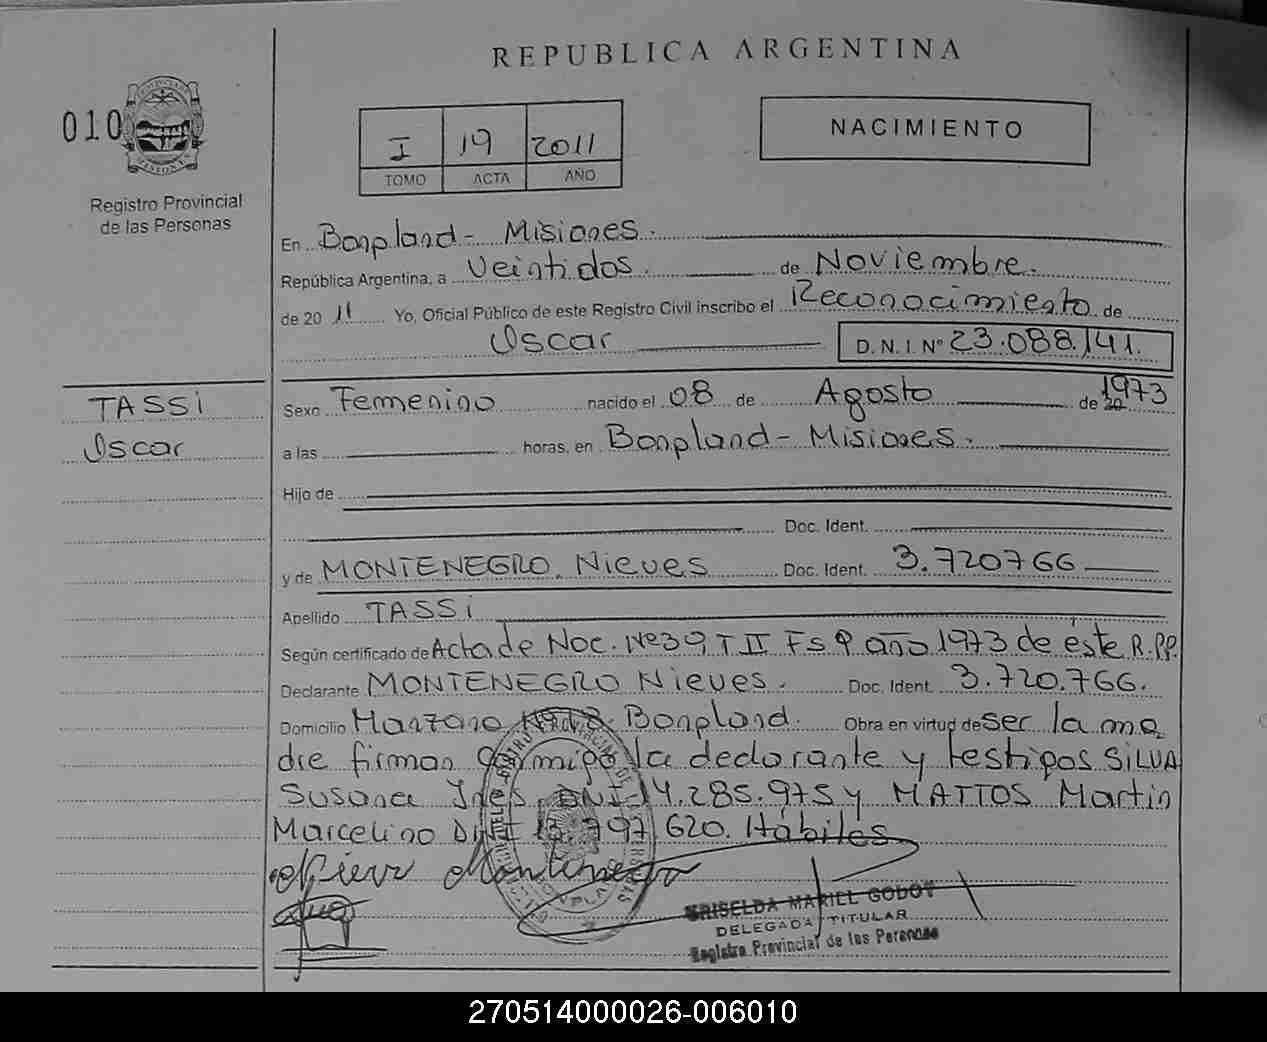 REPUBLICA ARGENTINA
010
I 19 2011
TOMO ACTA AÑO
NACIMIENTO
MISIONES
Registro Provincial
de las Personas
En Bonpland - Misiones.
República Argentina, a Veintidos. de Noviembre.
de 20 11 Yo, Oficial Público de este Registro Civil inscribo el Reconocimiento de
Oscar D.N.I. Nº 23.088.141.
TASSI
Oscar
Sexo Femenino nacido el 08 de Agosto de 20 1973
a las horas, en Bonpland - Misiones.
Hijo de
Doc. Ident.
y de MONTENEGRO, Nieves Doc. Ident. 3.720766
Apellido TASSI
Según certificado de Acta de Nac. Nº39, T II Fs 9 año 1973 de éste R.PP.
Declarante MONTENEGRO Nieves. Doc. Ident. 3.720.766.
Domicilio Manzana Bonpland. Obra en virtud de ser la ma
dre firman la declarante y testigos SILVA
Susana Ines, DNI 14.285.975 y MATTOS Martin
Marcelino DNI 797.620. Hábiles
Nieves Montenegro
GRISELDA MARIEL GODOY
DELEGADA TITULAR
Registro Provincial de las Personas
270514000026-006010